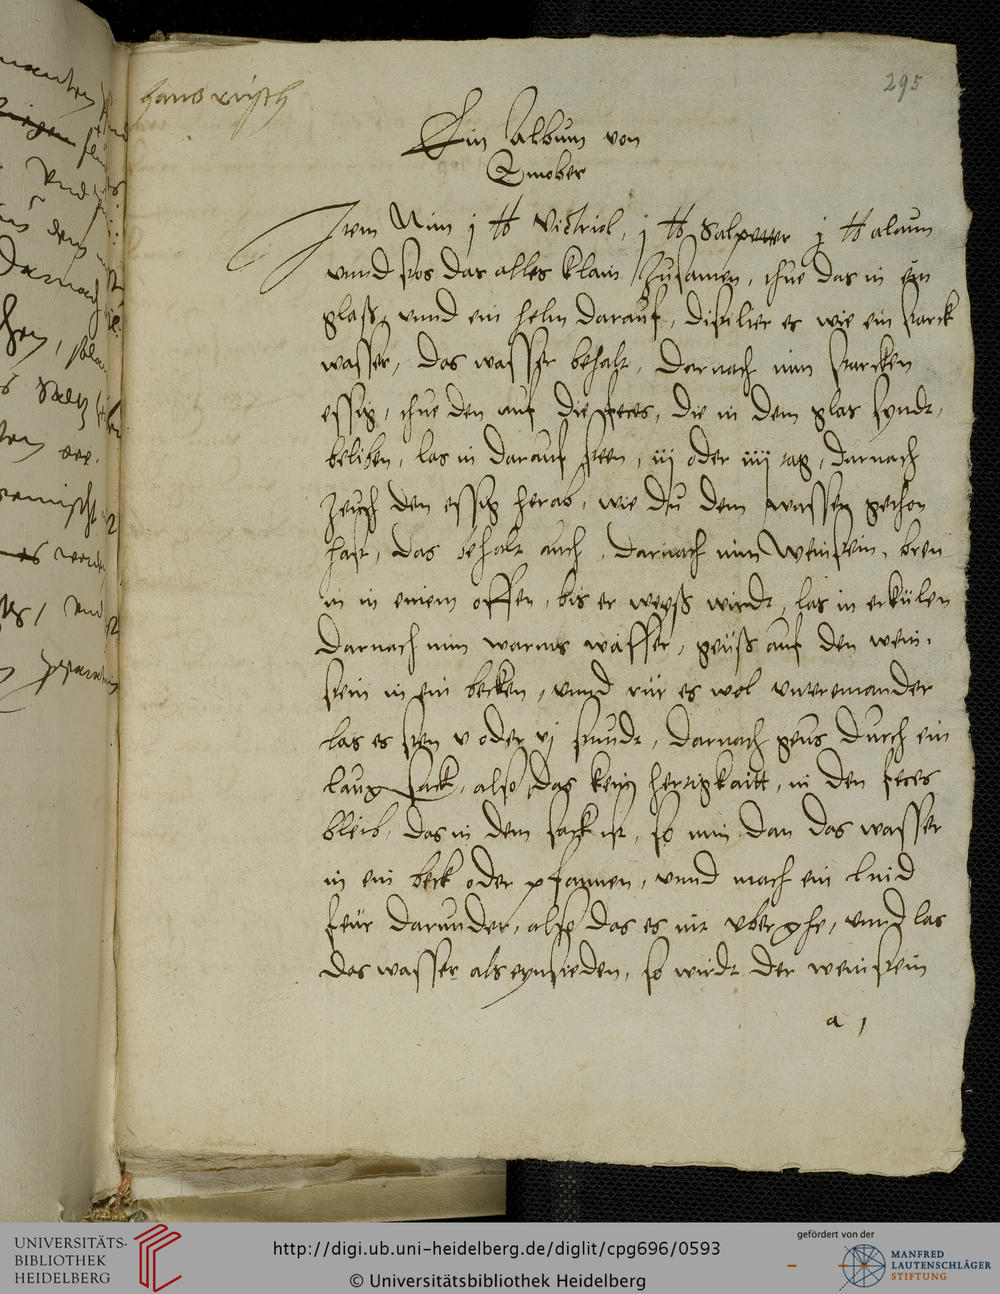 hans
295
Ein Album von
Zinober
Item Nim j ℔ Victriol, j ℔ Salpetter j ℔ alaun
vnnd stos das alles klain Zusamen, thue das in ein
glaß, vnnd ein helm darauf, distilier es wie ein starck
wasser, das wasser behalt, darnach nim starcken
essig, thue den auf die feces, die in dem glas syndt,
beliben, las in darauf steen, iij oder iiij tag, darnach
Zeuch den essig herab, wie du dem wasser gethon
hast, das behalt auch, darnach nim Weinstein, bren
in in einem offen, bis er weyß wirdt, las in erkülen
darnach nim warms wasser, geuß auf den wein-
stein in ein becken, vnnd rür es wol vntereinander
las es sten v oder vj stundt, darnach geus durch ein
laug sack, also das kein hertigkaitt, in den feces
bleib, das in dem sack ist, so nim dan das wasser
in ein beck oder pfannen, vnnd mach ein lind
feür darunder, also das es nit vber ghe, vnnd las
das wasser als eynsieden, so wirdt der weinstein
a j
UNIVERSITÄTS-
BIBLIOTHEK
HEIDELBERG
http://digi.ub.uni-heidelberg.de/diglit/cpg696/0593
© Universitätsbibliothek Heidelberg
gefördert von der
MANFRED
LAUTENSCHLÄGER
STIFTUNG